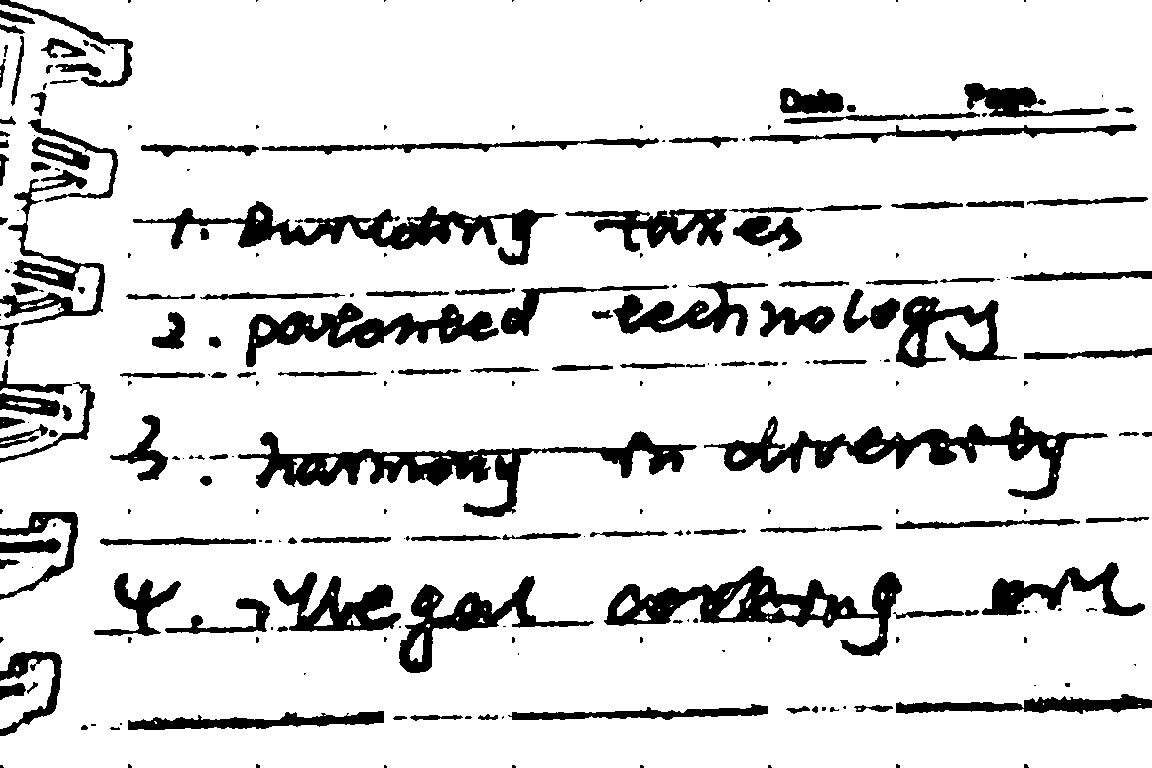 Date. Page.
1. Building taxes
2. patented technology
3. harmony in diversity
4. illegal cooking oil